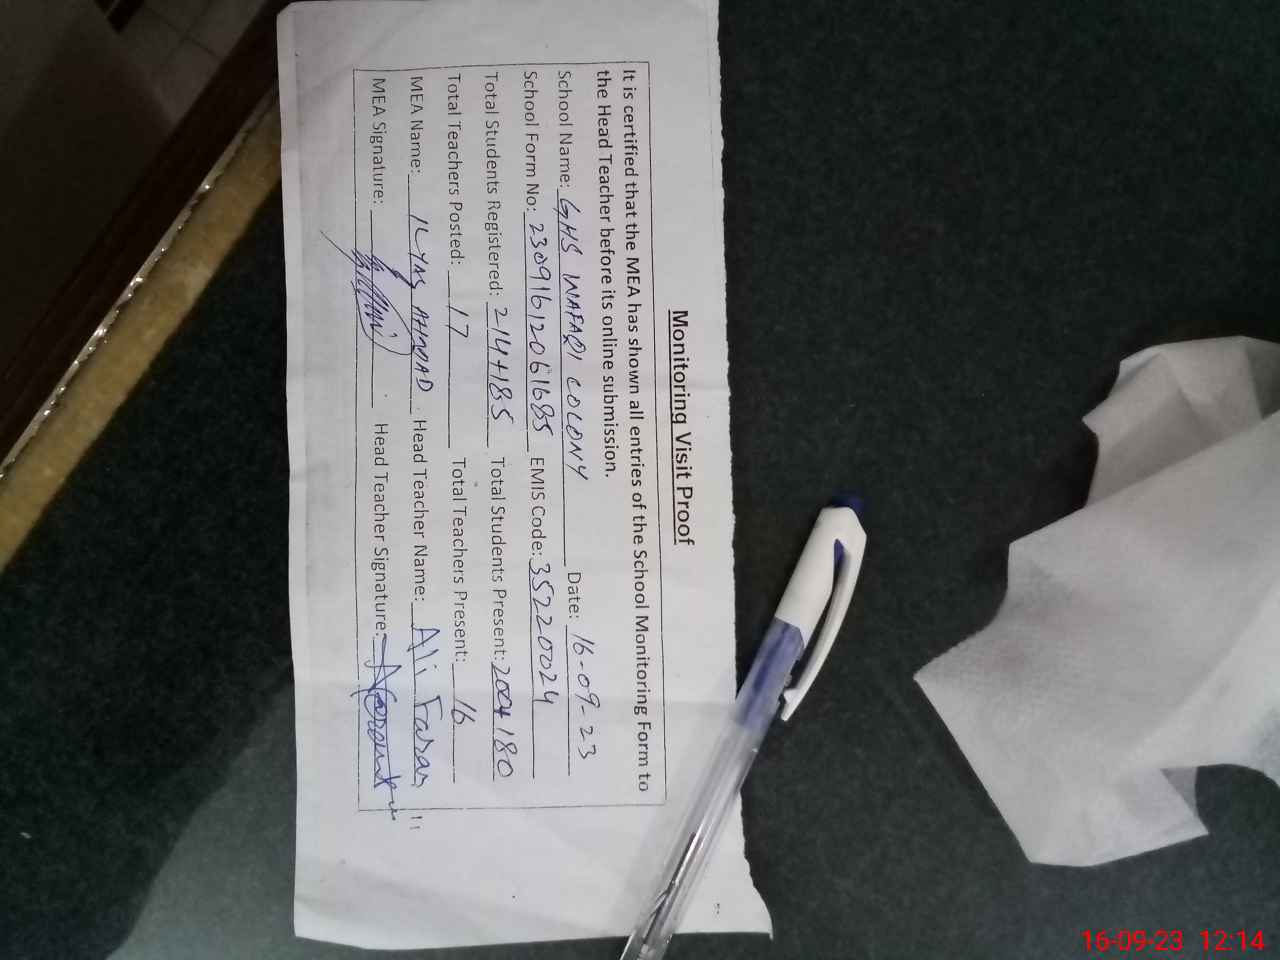 Monitoring Visit Proof
It is certified that the MEA has shown all entries of the School Monitoring Form to
the Head Teacher before its online submission.
School Name: GHS WAFAQI COLONY Date: 16-09-23
School Form No: 23091612061685 EMIS Code: 35220024
Total Students Registered: 214+185 Total Students Present: 180
Total Teachers Posted: 17 Total Teachers Present: 16
MEA Name: ILYAS AHMAD Head Teacher Name: Ali
MEA Signature: Head Teacher Signature:
16-09-23 12:14